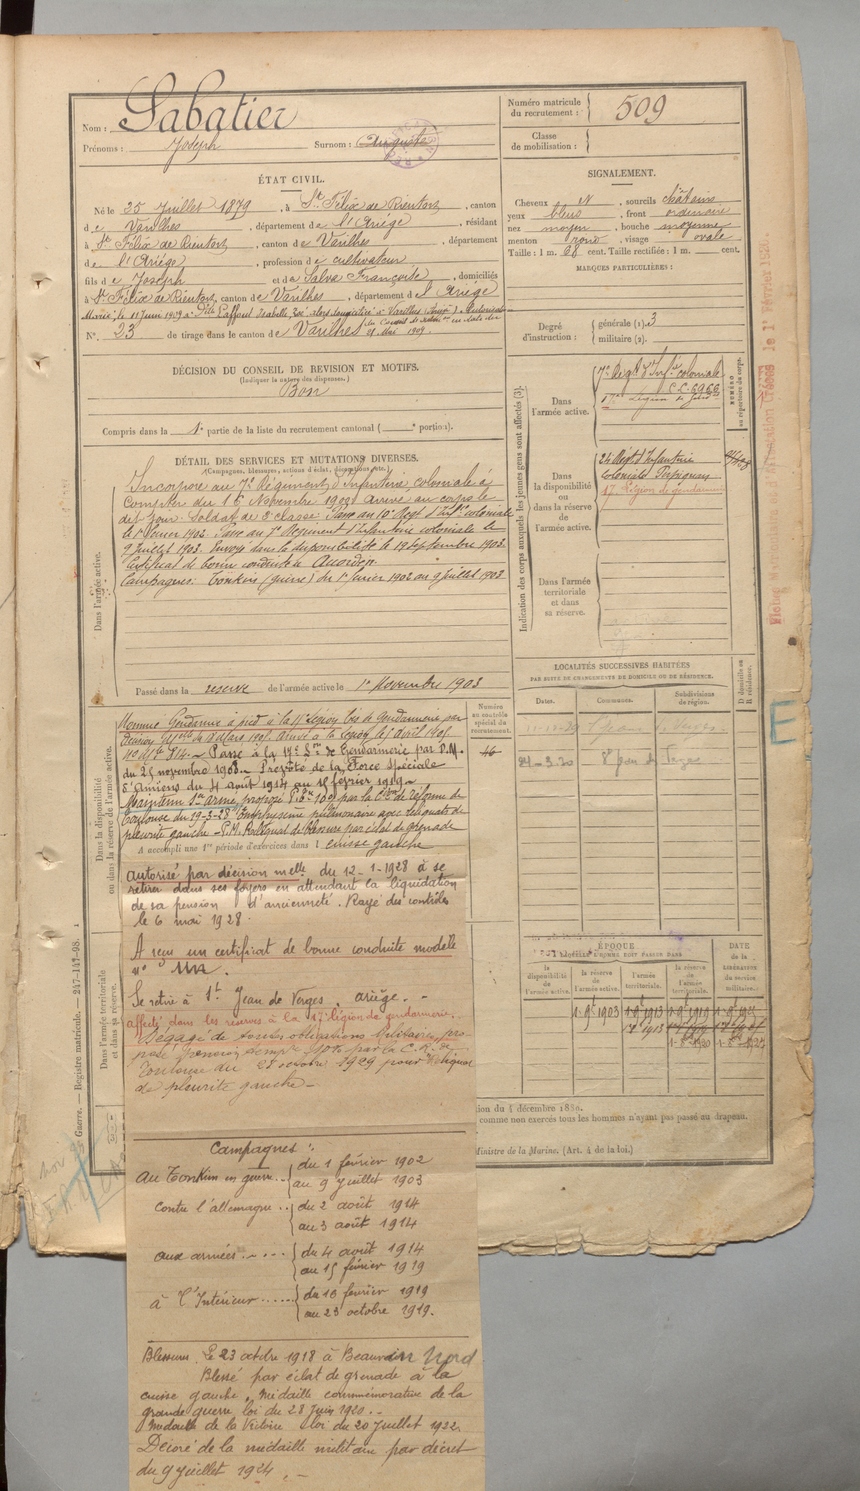 Nom : Sabatier
Prénoms : Joseph Surnom : Auguste
Numéro matricule du recrutement : 509
Classe de mobilisation :
ÉTAT CIVIL.
Né le 25 Juillet 1879, à St Félix de Rieutord, canton
de Varilhes, département de l'Ariège, résidant
à St Félix de Rieutord, canton de Varilhes, département
de l'Ariège, profession de cultivateur
fils de Joseph et de Salva Françoise, domiciliés
à St Félix de Rieutord, canton de Varilhes, département de l'Ariège
Marié le 11 Juin 1909 à Dlle Laffont Isabelle, à Varilhes
N° 23 de tirage dans le canton de Varilhes
SIGNALEMENT.
Cheveux N, sourcils châtains
yeux bleus, front ordinaire
nez moyen, bouche moyenne
menton rond, visage ovale
Taille : 1 m. 68 cent. Taille rectifiée : 1 m. cent.
MARQUES PARTICULIÈRES :
Degré d'instruction : générale (1). 3
militaire (2).
DÉCISION DU CONSEIL DE REVISION ET MOTIFS.
(Indiquer la nature des dispenses.)
Bon
Compris dans la 1e partie de la liste du recrutement cantonal ( portion).
DÉTAIL DES SERVICES ET MUTATIONS DIVERSES.
(Campagnes, blessures, actions d'éclat, décorations, etc.)
Dans l'armée active.
Incorporé au 7e Régiment d'Infanterie coloniale à
compter du 16 Novembre 1900 arrivé au corps le
dit jour. Soldat de 2e classe. Passé au 10e Regt d'Infie coloniale
le 1er février 1902. Passé au 7e Régiment d'Infanterie coloniale le
9 Juillet 1903. Envoyé dans la disponibilité le 19 Septembre 1903.
Certificat de bonne conduite Accordé.
Campagnes : Tonkin (guerre) du 1er février 1902 au 9 juillet 1903
Passé dans la réserve de l'armée active le 1er Novembre 1903
Indication des corps auxquels les jeunes gens sont affectés (3).
NUMÉRO au répertoire du corps.
Dans l'armée active.
7e Régt d'Infie coloniale
17e Légion de Gend
Dans la disponibilité ou dans la réserve de l'armée active.
24 Regt d'Infanterie
coloniale Perpignan
17e Légion de gendarmerie
Dans l'armée territoriale et dans sa réserve.
LOCALITÉS SUCCESSIVES HABITÉES
PAR SUITE DE CHANGEMENTS DE DOMICILE OU DE RÉSIDENCE.
Dates. Communes. Subdivisions de région. D domicile ou R résidence.
St Jean de Verges
Numéro au contrôle spécial du recrutement.
Dans la disponibilité ou dans la réserve de l'armée active.
Nommé Gendarme à pied à la 17e Légion bis de Gendarmerie par
Passé à la 17e Lon de Gendarmerie par D.M.
du 25 novembre 1908 - Prévôté de la Force Spéciale
d'Amiens du 4 août 1914 au 15 février 1919 -
Maintenu Sce armé, proposé P.Pte 10% par la Con de Réforme de
Toulouse du 19-3-28 Emphysème pulmonaire avec reliquats de
pleurite gauche - P.M. Reliquat de blessure par éclat de grenade
A accompli une 1re période d'exercices dans l cuisse gauche
autorisé par décision melle du 12-1-1928 à se
retirer dans ses foyers en attendant la liquidation
de sa pension d'ancienneté. Rayé des contrôles
le 6 mai 1928.
A reçu un certificat de bonne conduite modèle
n°
Se retire à St Jean de Verges, Ariège. -
affecté dans les réserves à la 17e légion de gendarmerie.
Dégagé de toutes obligations Militaires, pro-
posé pension temp. 10% par la C.R. de
Toulouse du 28 octobre 1929 pour Reliquat
de pleurite gauche -
Dans l'armée territoriale et dans sa réserve.
ÉPOQUE
À LAQUELLE L'HOMME DOIT PASSER DANS
la disponibilité de l'armée active. la réserve de l'armée active. l'armée territoriale. la réserve de l'armée territoriale.
DATE de la LIBÉRATION du service militaire.
1-9e 1903 1-9e 1913 1-9e 1919
Ministre de la Marine. (Art. 4 de la loi.)
comme non exercés tous les hommes n'ayant pas passé au drapeau.
Guerre. — Registre matricule. — 247-147-98.
Campagnes :
Au Tonkin en guerre.. du 1 février 1902
au 9 Juillet 1903
Contre l'allemagne.. du 2 août 1914
au 3 août 1914
aux armées.... du 4 août 1914
au 15 février 1919
à l'Intérieur...... du 16 février 1919
au 23 octobre 1919.
Blessures. Le 23 octobre 1918 à Beauvain Nord
Blessé par éclat de grenade à la
cuisse gauche. Médaille commémorative de la
grande guerre loi du 28 Juin 1920. -
Médaille de la Victoire loi du 20 Juillet 1922.
Décoré de la médaille militaire par décret
du 9 juillet 1924. -